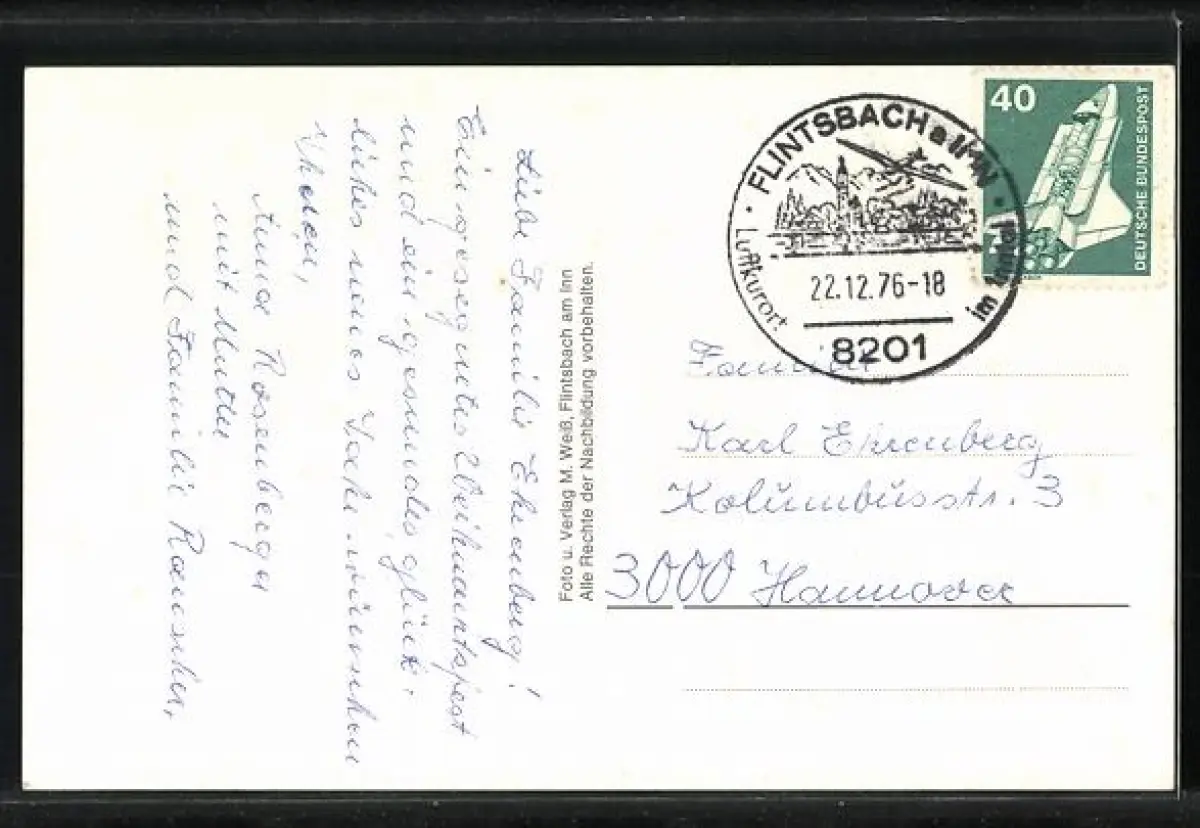 Liebe Familie Ehrenberg!
Ein gesegnetes Weihnachtsfest
und ein gesundes, glück-
liches neues Jahr wünschen
Ihnen,
Anna Rosenberger
mit Mutter
und Familie
Foto u. Verlag M. Weiß, Flintsbach am Inn
Alle Rechte der Nachbildung vorbehalten.
40
DEUTSCHE BUNDESPOST
FLINTSBACH a. INN
Luftkurort
im Inntal
22.12.76-18
8201
Familie
Karl Ehrenberg
Kolumbusstr. 3
3000 Hannover